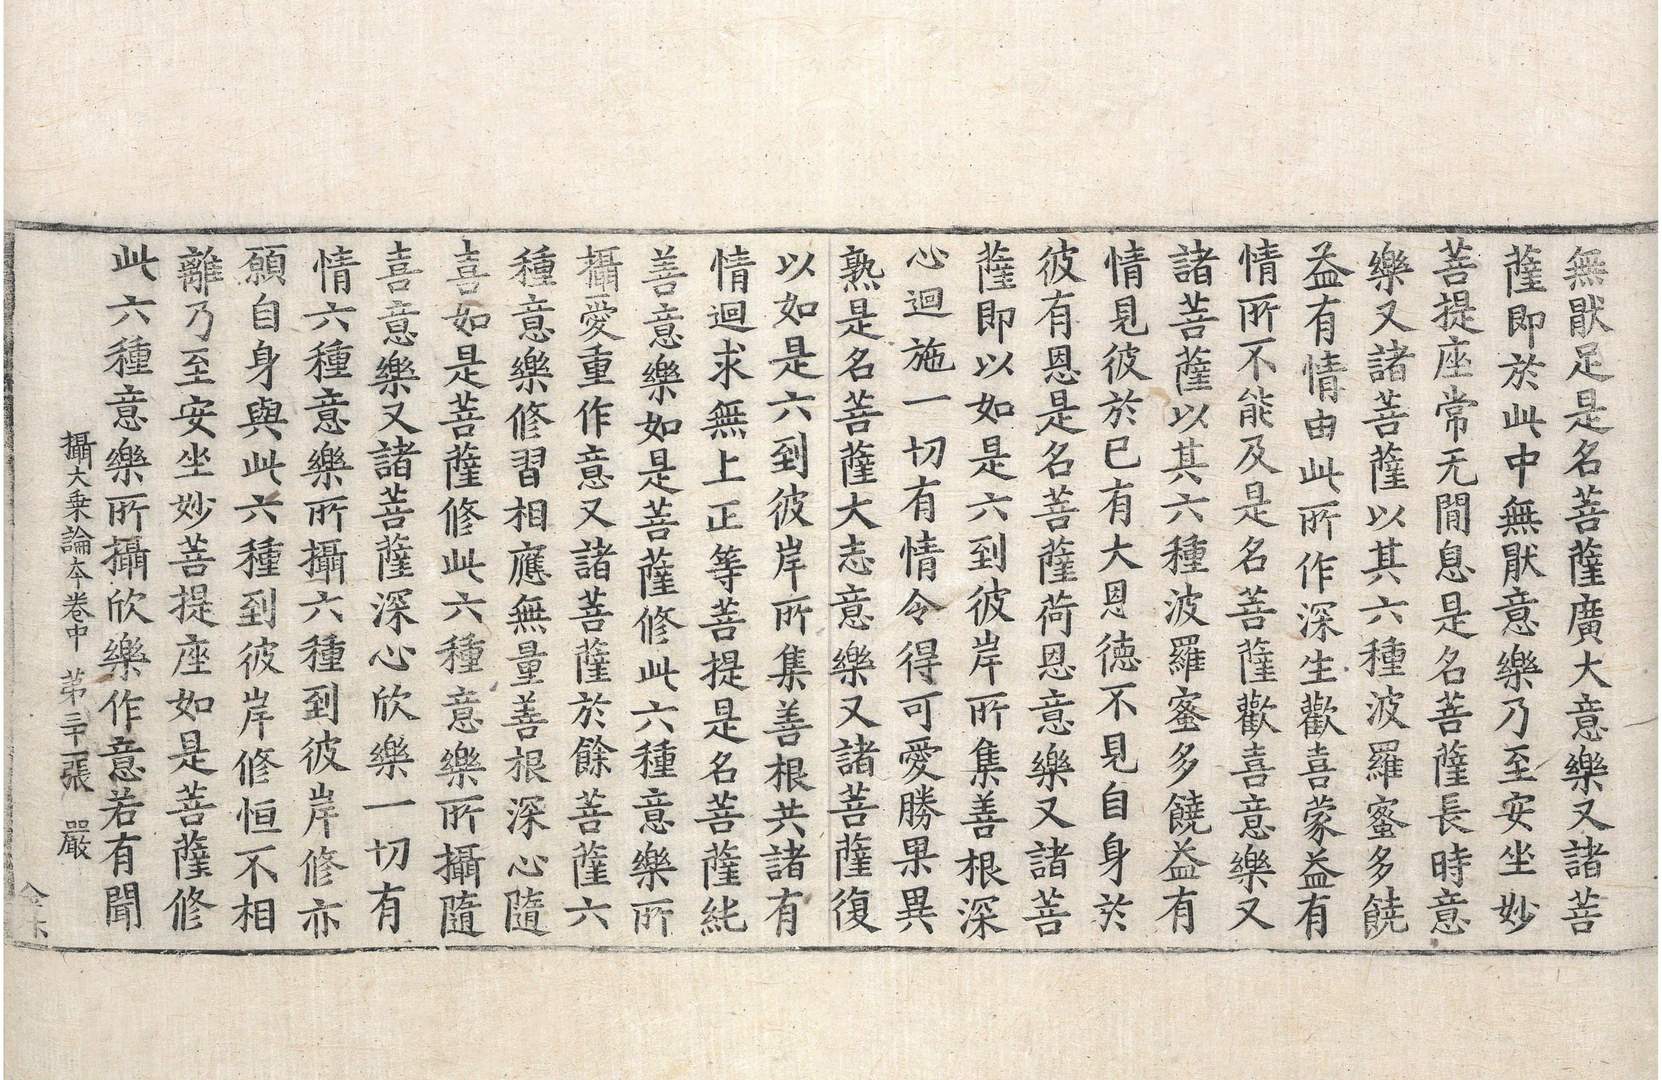 無猒足是名菩薩廣大意樂又諸菩
薩即於此中無猒意樂乃至安坐妙
菩提座常无間息是名菩薩長時意
樂又諸菩薩以其六種波羅蜜多饒
益有情由此所作深生歡喜蒙益有
情所不能及是名菩薩歡喜意樂又
諸菩薩以其六種波羅蜜多饒益有
情見彼於已有大恩德不見自身於
彼有恩是名菩薩荷恩意樂又諸菩
薩即以如是六到彼岸所集善根深
心迴施一切有情令得可愛勝果異
熟是名菩薩大志意樂又諸菩薩復
以如是六到彼岸所集善根共諸有
情迴求無上正等菩提是名菩薩純
善意樂如是菩薩修此六種意樂所
攝愛重作意又諸菩薩於餘菩薩六
種意樂修習相應無量善根深心隨
喜如是菩薩修此六種意樂所攝隨
喜意樂又諸菩薩深心欣樂一切有
情六種意樂所攝六種到彼岸修亦
願自身與此六種到彼岸修恒不相
離乃至安坐妙菩提座如是菩薩修
此六種意樂所攝欣樂作意若有聞
攝大乗論本卷中 苐三十一張 嚴